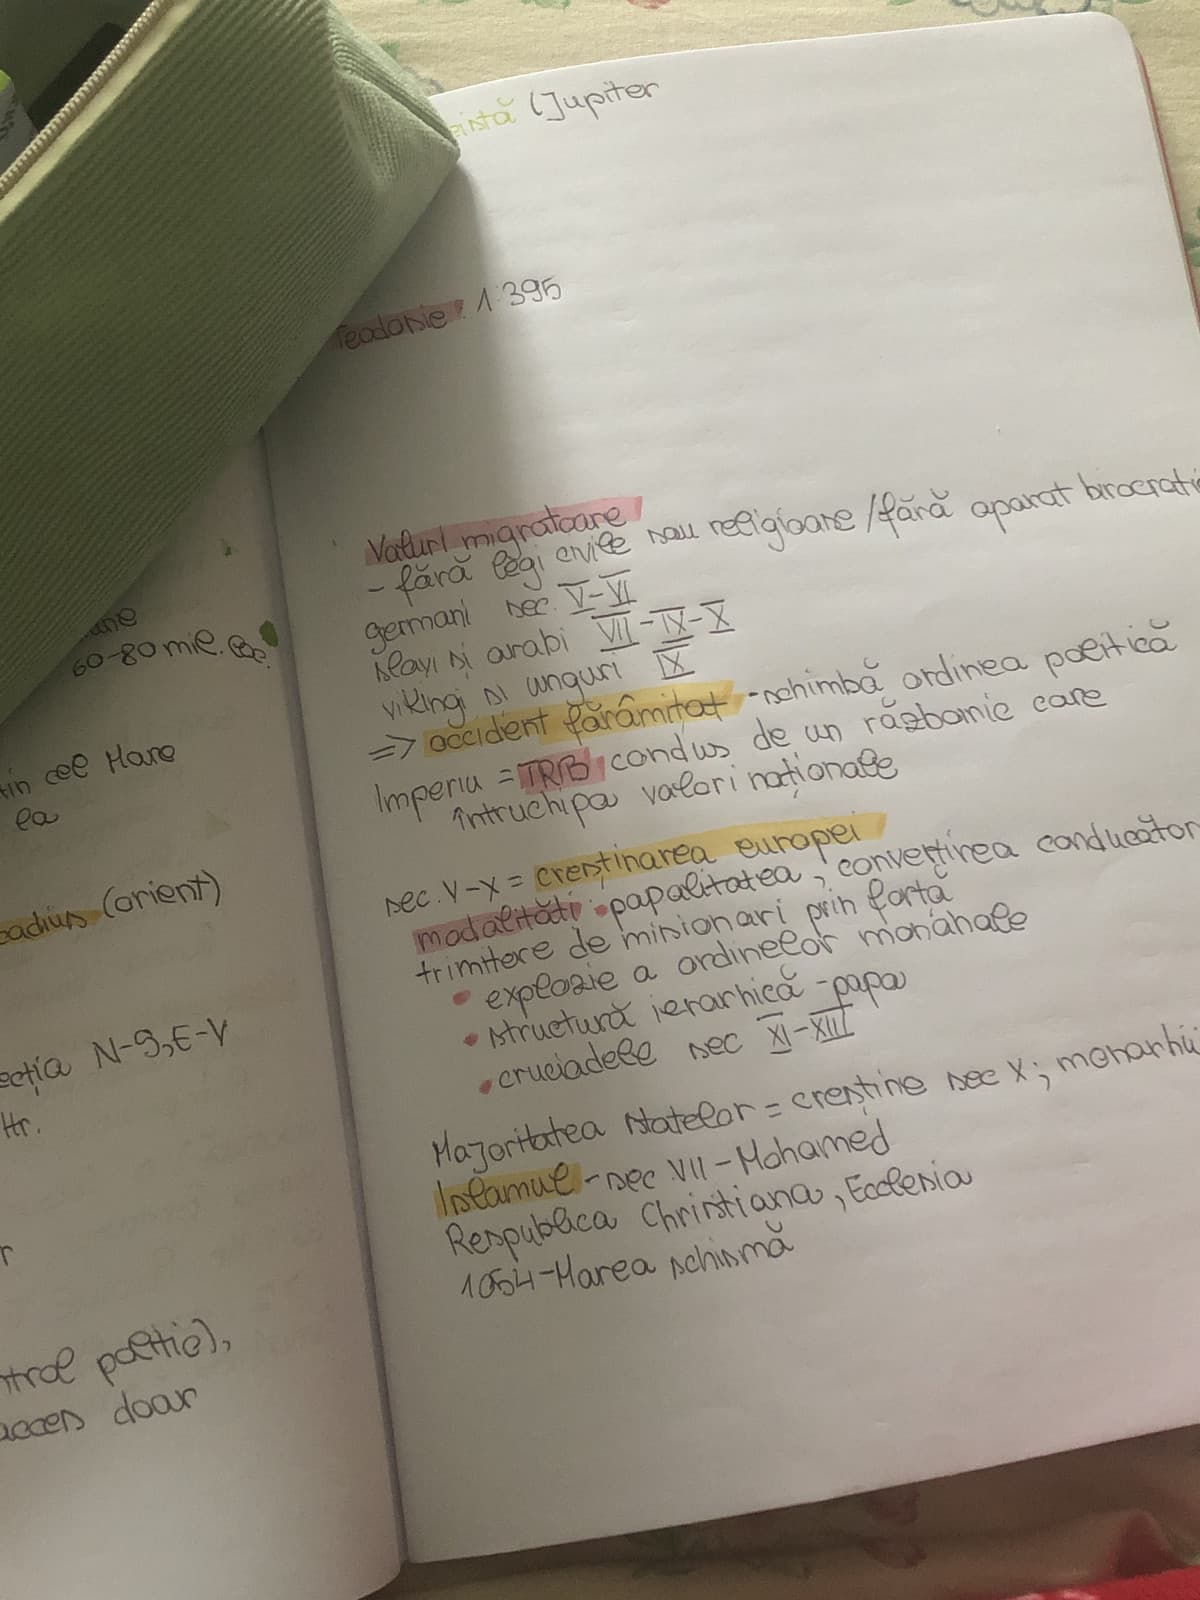 60-80 mil.
cel Mare
ea
(orient)
N-S, E-V
Hr.
politic),
acces doar
(Jupiter
Teodosie: 1.395
Valuri migratoare
- fără legi civile sau religioare / fără aparat birocrati
germani sec. V-VI
slavi și arabi VII-IX-X
vikingi și unguri IX
=> occident fărâmitat - schimbă ordinea politică
Imperiu = TRIB condus de un războinic care
întruchipa valori naționale
sec. V-X = creștinarea europei
modalități: papalitatea, convertirea conducător
trimitere de misionari prin forță
• explozie a ordinelor monahale
• structură ierarhică - papa
• cruciadele sec XI-XIII
Majoritatea statelor = creștine sec X; monarhii
Islamul - sec VII - Mohamed
Respublica Christiana, Ecclesia
1054 - Marea schismă